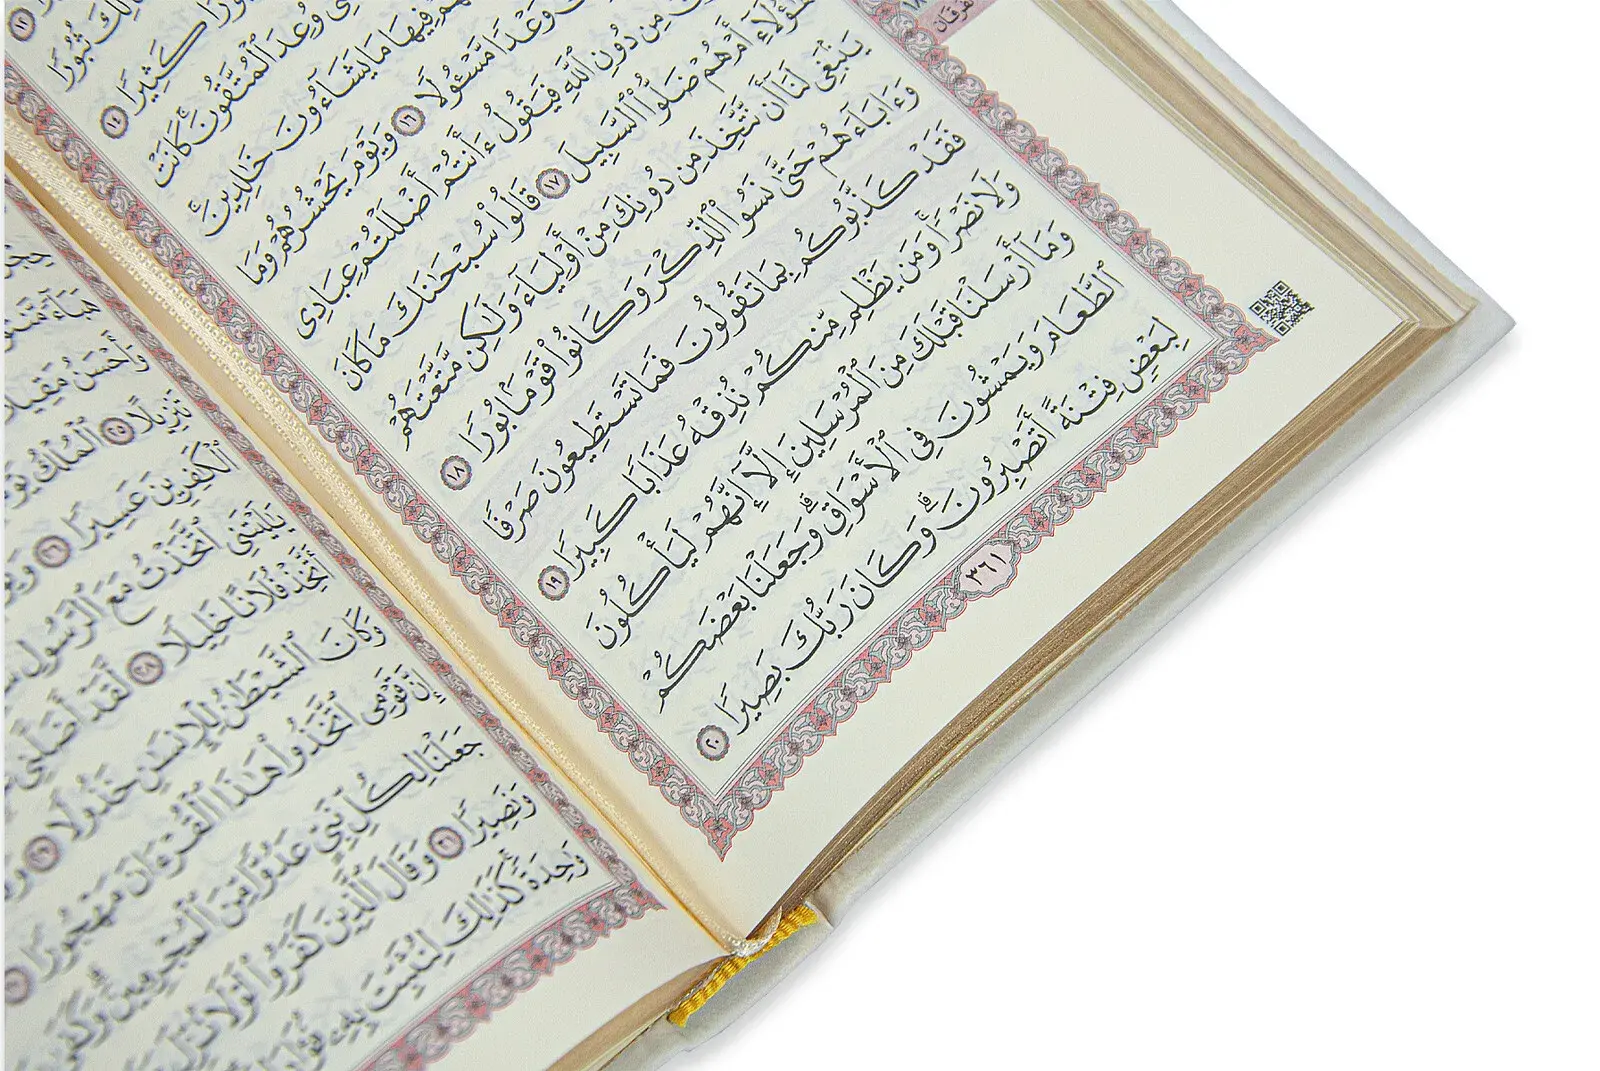 ١٣
ثُبُورًا
كَثِيرًا ١٤
وُعِدَ ٱلْمُتَّقُونَ ۚ كَانَتْ
فِيهَا مَا يَشَآءُونَ خَٰلِدِينَ ۚ
وَعْدًا مَّسْـُٔولًا ١٦ وَيَوْمَ يَحْشُرُهُمْ وَمَا
مِن دُونِ ٱللَّهِ فَيَقُولُ ءَأَنتُمْ أَضْلَلْتُمْ عِبَادِى
أَمْ هُمْ ضَلُّوا۟ ٱلسَّبِيلَ ١٧ قَالُوا۟ سُبْحَٰنَكَ مَا كَانَ
يَنۢبَغِى لَنَآ أَن نَّتَّخِذَ مِن دُونِكَ مِنْ أَوْلِيَآءَ وَلَٰكِن مَّتَّعْتَهُمْ
وَءَابَآءَهُمْ حَتَّىٰ نَسُوا۟ ٱلذِّكْرَ وَكَانُوا۟ قَوْمًۢا بُورًا ١٨
فَقَدْ كَذَّبُوكُم بِمَا تَقُولُونَ فَمَا تَسْتَطِيعُونَ صَرْفًا
وَلَا نَصْرًا ۚ وَمَن يَظْلِم مِّنكُمْ نُذِقْهُ عَذَابًا كَبِيرًا ١٩
وَمَآ أَرْسَلْنَا قَبْلَكَ مِنَ ٱلْمُرْسَلِينَ إِلَّآ إِنَّهُمْ لَيَأْكُلُونَ
ٱلطَّعَامَ وَيَمْشُونَ فِى ٱلْأَسْوَاقِ ۗ وَجَعَلْنَا بَعْضَكُمْ
لِبَعْضٍ فِتْنَةً أَتَصْبِرُونَ ۗ وَكَانَ رَبُّكَ بَصِيرًا ٢٠
٣٦١
وَأَحْسَنُ مَقِيلًا
تَنزِيلًا ٢٥ ٱلْمُلْكُ
ٱلْكَٰفِرِينَ عَسِيرًا ٢٦
يَٰلَيْتَنِى ٱتَّخَذْتُ مَعَ ٱلرَّسُولِ
أَتَّخِذْ فُلَانًا خَلِيلًا ٢٨ لَّقَدْ أَضَلَّنِى
وَكَانَ ٱلشَّيْطَٰنُ لِلْإِنسَٰنِ خَذُولًا ٢٩
إِنَّ قَوْمِى ٱتَّخَذُوا۟ هَٰذَا ٱلْقُرْءَانَ مَهْجُورًا
جَعَلْنَا لِكُلِّ نَبِىٍّ عَدُوًّا مِّنَ ٱلْمُجْرِمِينَ ۗ وَكَفَىٰ
وَنَصِيرًا ٣١ وَقَالَ ٱلَّذِينَ كَفَرُوا۟ لَوْلَا نُزِّلَ
وَٰحِدَةً ۚ كَذَٰلِكَ لِنُثَبِّتَ بِهِۦ